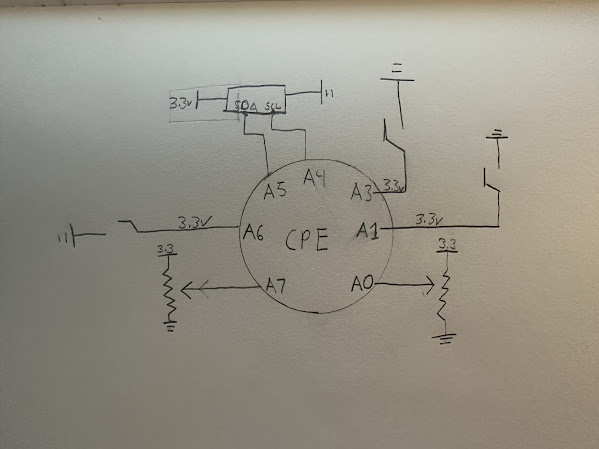 3.3v SDA SCL
A5 A4 A3 3.3v
3.3v A6 CPE A1 3.3v
3.3 3.3
A7 A0